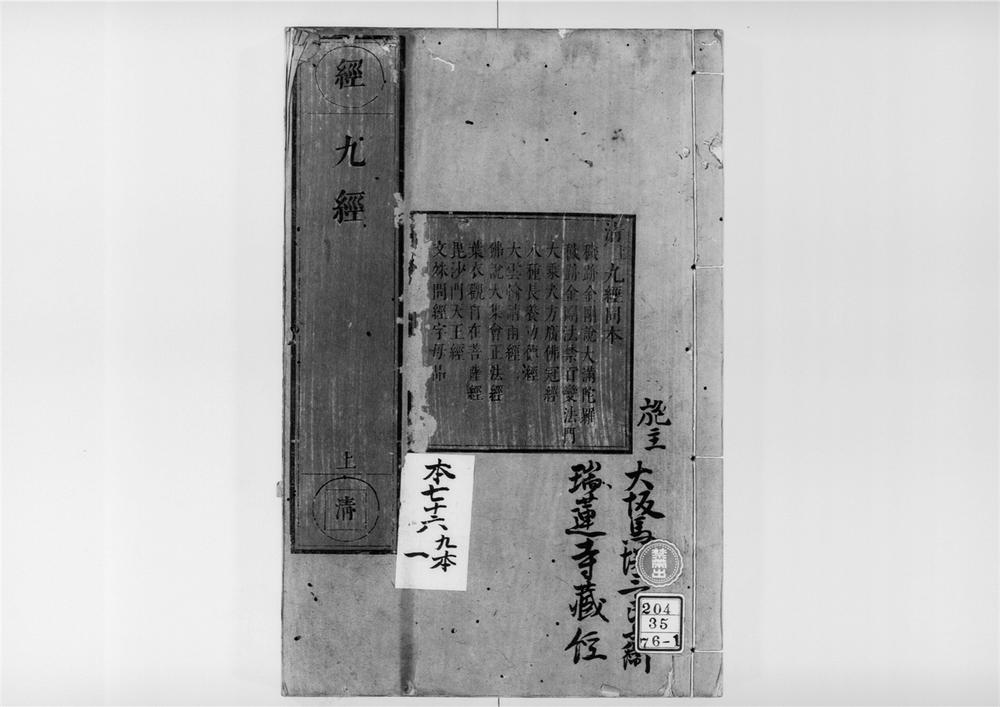 施主
大坂馬
瑞蓮寺藏
九經同本
穢跡金剛說大滿陀羅
穢跡金剛法禁百變法門
大乘大方廣佛冠經
八種長養功德經
大雲輪請雨經
佛說大集會正法經
葉衣觀自在菩薩經
毘沙門天王經
文殊問經字母品
經
九經
上
清
本七十六
九本
一
禁帶出
204
35
76-1